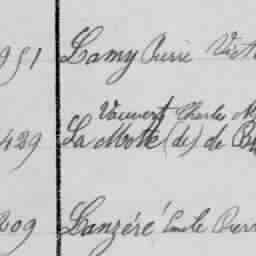 951 Lamy Pierre Vict
Vauvert Charles M
429 La Motte (de) de B
209 Lanzéré Emile Pierr